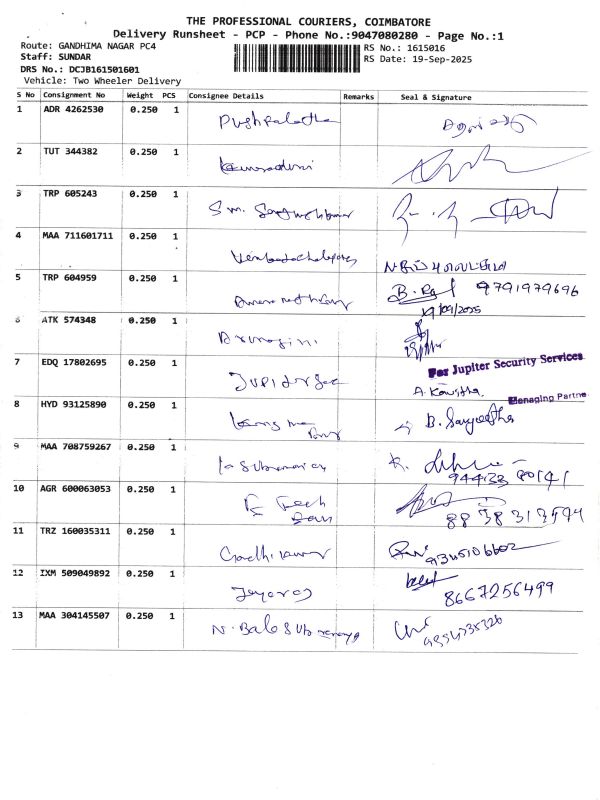 THE PROFESSIONAL COURIERS, COIMBATORE
Delivery Runsheet - PCP - Phone No.:9047080280 - Page No.:1
Route: GANDHIMA NAGAR PC4
RS No.: 1615016
Staff: SUNDAR
RS Date: 19-Sep-2025
DRS No.: DCJB161501601
Vehicle: Two Wheeler Delivery
S No Consignment No Weight PCS Consignee Details Remarks Seal & Signature
1 ADR 4262530 0.250 1 Pushpalatha
2 TUT 344382 0.250 1
3 TRP 605243 0.250 1 S.m.
4 MAA 711601711 0.250 1 Venkatachalapathy
5 TRP 604959 0.250 1 B. Raj 9791979696
19/09/2025
6 ATK 574348 0.250 1
7 EDQ 17802695 0.250 1 For Jupiter Security Services
A. Kavitha.
Managing Partne
8 HYD 93125890 0.250 1 B. Sangeetha
9 MAA 708759267 0.250 1
10 AGR 600063053 0.250 1 Tech
11 TRZ 160035311 0.250 1 9345106602
12 IXM 509049892 0.250 1 Jayaraj 8667256499
13 MAA 304145507 0.250 1 N. Bala